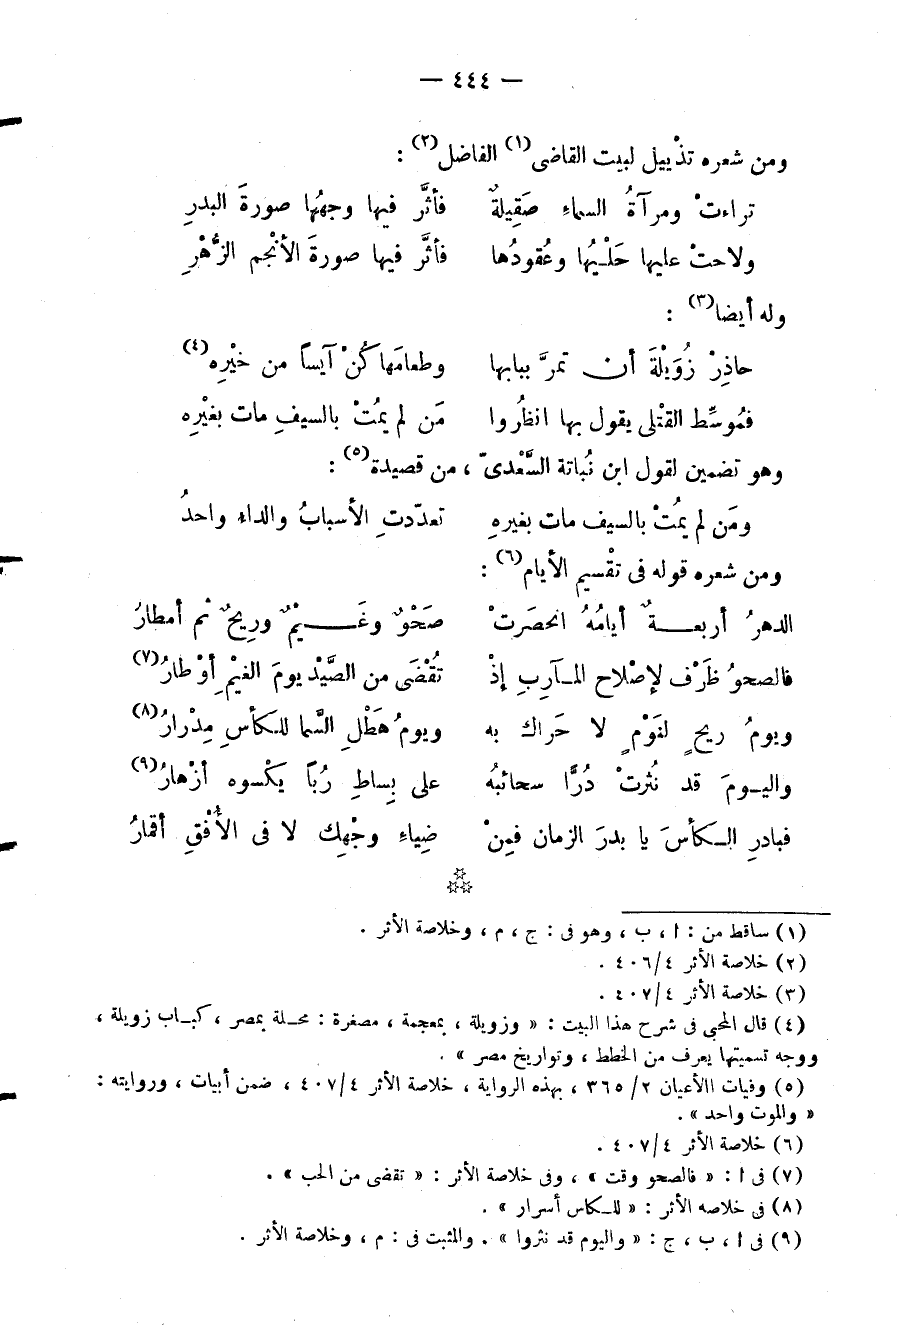 — ٤٤٤ —
ومن شعره تذْييل لبيت القاضى(١) الفاضل(٢) :
تراءتْ ومرآةُ السماءِ صَقِيلةٌ فأثَّر فيها وجهُها صورةَ البدرِ
ولاحتْ عليها حَلْيُها وعُقودُها فأثَّر فيها صورةَ الأنْجم الزُّهْرِ
وله أيضا(٣) :
حاذِرْ زُوَيْلَةَ أن تمرَّ ببابها وطعامَها كُنْ آيساً من خيْرِه(٤)
فمُوسِّط القتْلى يقول بها انظُروا مَن لم يمُتْ بالسيفِ مات بغيْرِه
وهو تضمين لقول ابن نُباتة السَّعْدىّ ، من قصيدة(٥) :
ومَن لم يمُتْ بالسيف مات بغيرهِ تعدّدتِ الأسبابُ والداءِ واحدُ
ومن شعره قوله فى تقْسيم الأيام(٦) :
الدهرُ أربعــةٌ أيامُهُ انحصَرتْ صَحْوٌ وغَــيْمٌ وريحٌ ثم أمطارُ
فالصحوُ ظَرْف لإصْلاح المـآرِبِ إذْ تُقْضَى من الصَّيْد يومَ الغيْمِ أوْطارُ(٧)
ويومُ ريحٍ لنَوْمٍ لا حَراك به ويومُ هَطْلِ السَّما للـكأسِ مِدْرارُ(٨)
واليـومَ قد نُثرتْ دُرًّا سحائبُه على بِساطِ رُباً يكْسوه أزْهارُ(٩)
فبادرِ الـكأسَ يا بدرَ الزمان فمِنْ ضِياءِ وجْهِك لا فى الأُفْقِ أقمارُ
(١) ساقط من : ا ، ب ، وهو فى : ج ، م ، وخلاصة الأثر .
(٢) خلاصة الأثر ٤٠٦/٤ .
(٣) خلاصة الأثر ٤٠٧/٤ .
(٤) قال المحبى فى شرح هذا البيت : « وزويلة ، بمعجمة ، مصغرة : محـلة بمصر ، كبـاب زويلة ،
ووجه تسميتها يعرف من الخطط ، وتواريخ مصر » .
(٥) وفيات االأعيان ٣٦٥/٢ ، بهذه الرواية ، خلاصة الأثر ٤٠٧/٤ ، ضمن أبيات ، وروايته :
« والموت واحد » .
(٦) خلاصة الأثر ٤٠٧/٤ .
(٧) فى ا : « فالصحو وقت » ، وفى خلاصة الأثر : « تقضى من الحب » .
(٨) فى خلاصه الأثر : « للـكاس أسرار » .
(٩) فى ا ، ب ، ج : « واليوم قد نثروا » . والمثبت فى : م ، وخلاصة الأثر .